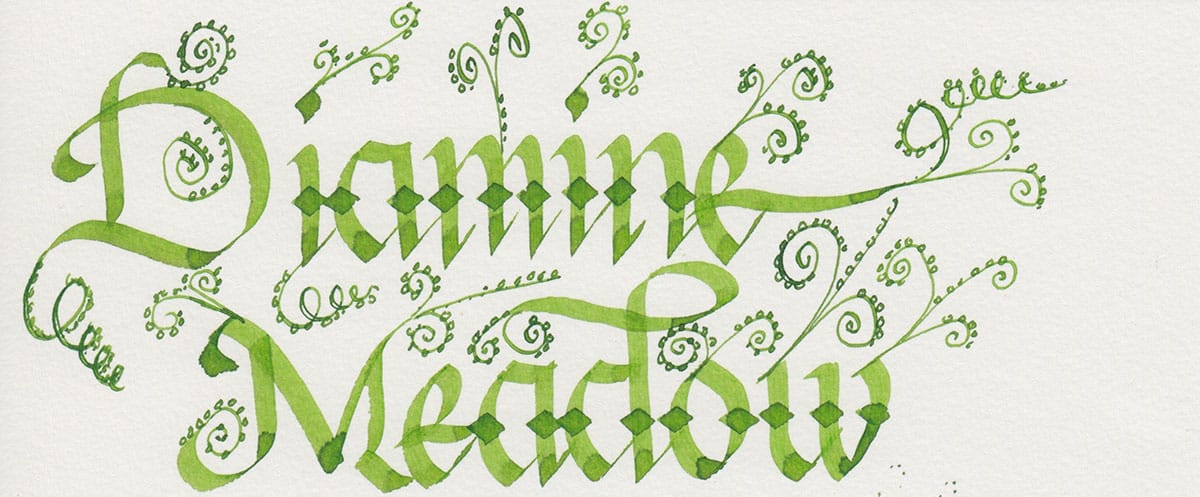 Diamine
Meadow